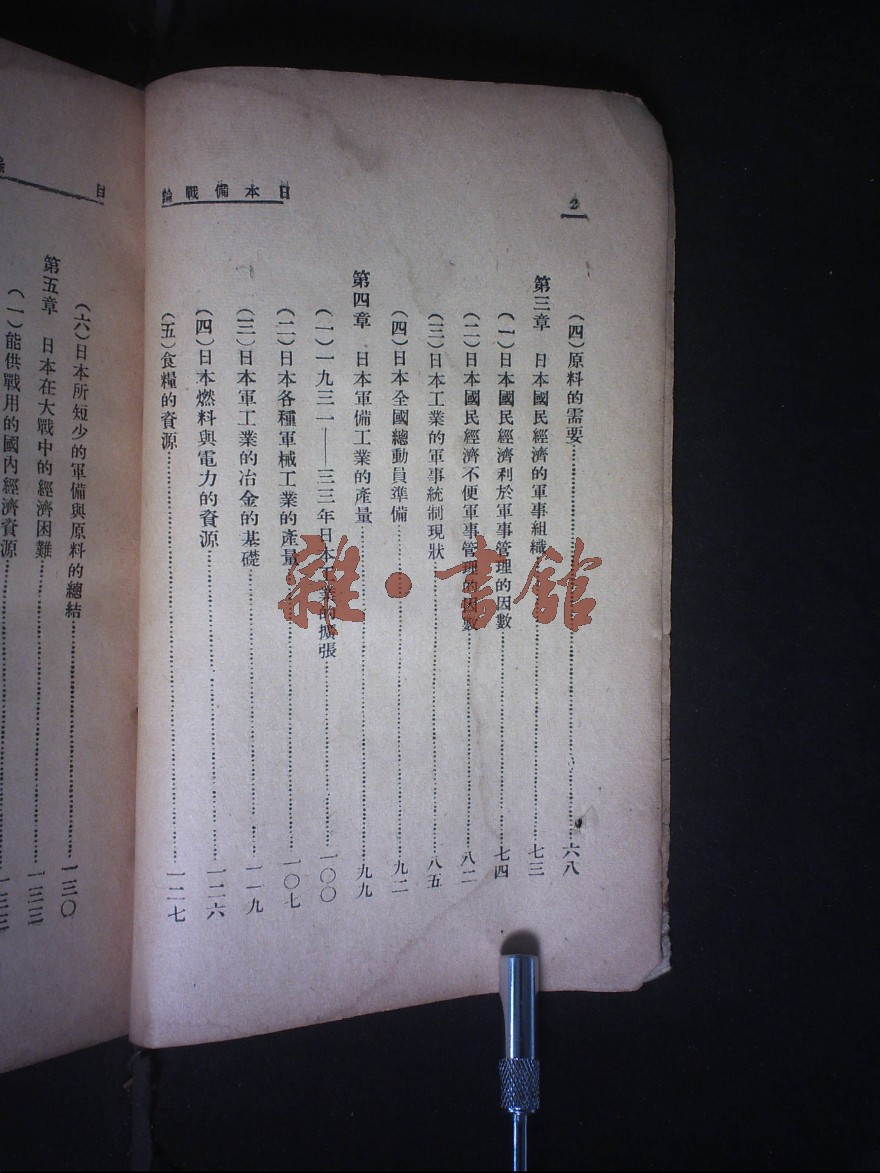 2
日本備戰論
（四）原料的需要……六八
第三章　日本國民經濟的軍事組織……七三
（一）日本國民經濟利於軍事管理的因數……七四
（二）日本國民經濟不便軍事管理的因數……八二
（三）日本工業的軍事統制現狀……八五
（四）日本全國總動員準備……九二
第四章　日本軍備工業的產量……九九
（一）一九三一——三三年日本工業的擴張……一〇〇
（二）日本各種軍械工業的產量……一〇七
（三）日本軍工業的冶金的基礎……一一九
（四）日本燃料與電力的資源……一二六
（五）食糧的資源……一二七
目
（六）日本所短少的軍備與原料的總結……一三〇
第五章　日本在大戰中的經濟困難……一三三
（一）能供戰用的國內經濟資源……一三三
雜·書館